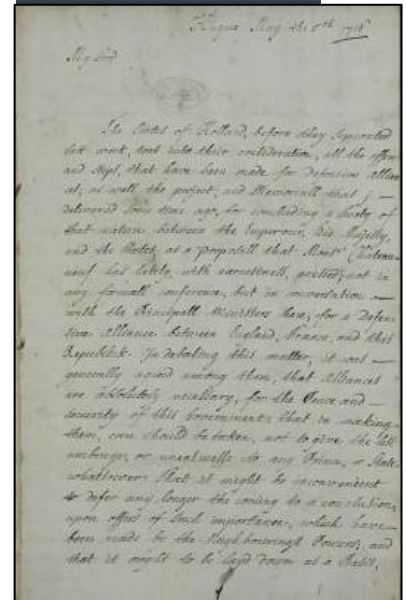 Hague May the 5th 1716
My Lord
The States of Holland, before they separated
last week, took into their consideration, all the offers
and steps, that have been made for defensive Allian
ces, as well the project, and Memoriall that j —
delivered some time ago, for concluding a treaty of
that nature between the Emperour, His Majesty,
and the States, as a proposall that Monsr Chateau-
neuf has lately, with earnestness, pressed, not in
any formall conference, but in conversation —
with the Principall Ministers here, for a Defen
sive Alliance between England, France, and this
Republick. In debating this matter, it was —
generally owned among them, that Alliances
are absolutely necessary, for the Peace and —
Security of this Government; that in making
them, care should be taken, not to give the least
umbrage, or uneasinesse to any Prince, or State
whatsoever; that it might be inconvenient
to defer any longer the coming to a conclusion,
upon offers of such importance, which have —
been made by the Neighbouring Powers; and
that it ought to be layd down as a Basis,